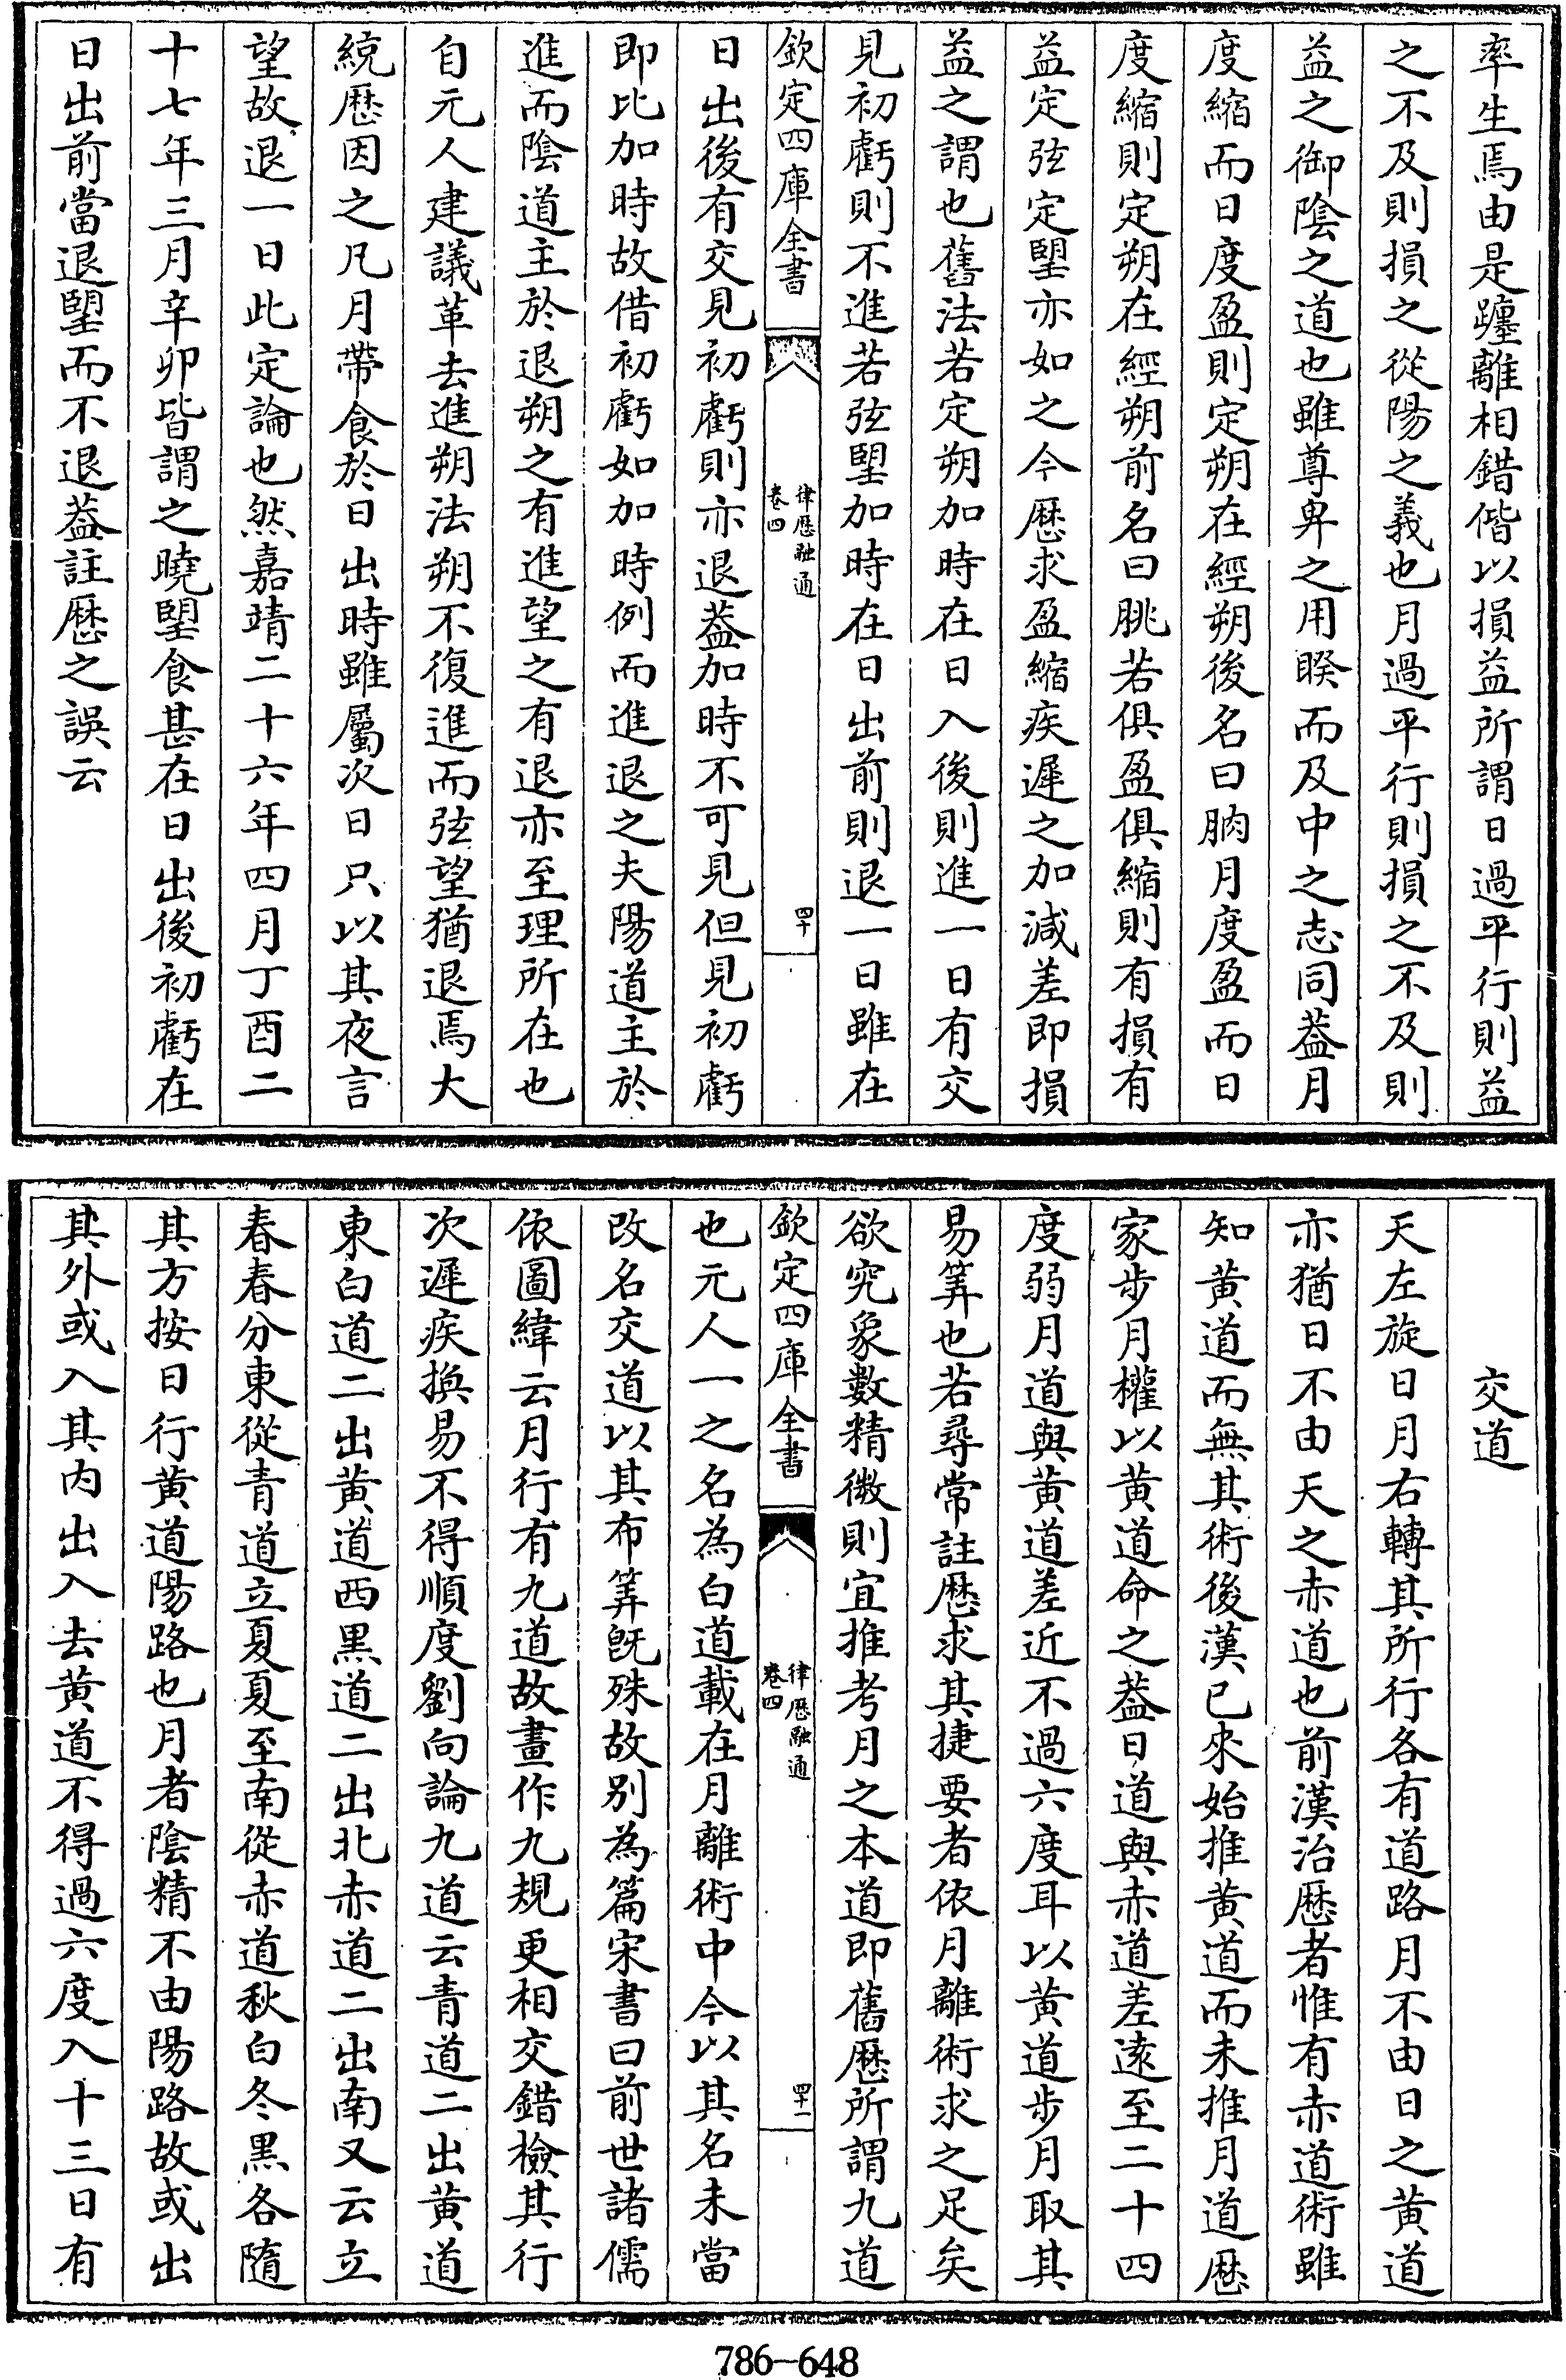 率生焉由是躔離相錯偕以損益所謂日過平行則益
之不及則損之從陽之義也月過平行則損之不及則
益之御陰之道也雖尊卑之用睽而及中之志同葢月
度縮而日度盈則定朔在經朔後名曰朒月度盈而日
度縮則定朔在經朔前名曰朓若俱盈俱縮則有損有
益定弦定朢亦如之今厯求盈縮疾遲之加減差即損
益之謂也舊法若定朔加時在日入後則進一日有交
見初虧則不進若弦朢加時在日出前則退一日雖在
欽定四庫全書
律厯融通
卷四
四十
日出後有交見初虧則亦退葢加時不可見但見初虧
即比加時故借初虧如加時例而進退之夫陽道主於
進而陰道主於退朔之有進望之有退亦至理所在也
自元人建議革去進朔法朔不復進而弦望猶退焉大
統厯因之凡月帶食於日出時雖屬次日只以其夜言
望故退一日此定論也然嘉靖二十六年四月丁酉二
十七年三月辛卯皆謂之曉朢食甚在日出後初虧在
日出前當退朢而不退葢註厯之誤云
交道
天左旋日月右轉其所行各有道路月不由日之黄道
亦猶日不由天之赤道也前漢治厯者惟有赤道術雖
知黄道而無其術後漢已來始推黄道而未推月道厯
家步月權以黄道命之葢日道與赤道差遠至二十四
度弱月道與黄道差近不過六度耳以黄道步月取其
易筭也若尋常註厯求其捷要者依月離術求之足矣
欲究象數精微則宜推考月之本道即舊厯所謂九道
欽定四庫全書
律厯融通
卷四
四十一
也元人一之名為白道載在月離術中今以其名未當
改名交道以其布筭旣殊故别為篇宋書曰前世諸儒
依圖緯云月行有九道故畫作九規更相交錯檢其行
次遲疾換易不得順度劉向論九道云青道二出黄道
東白道二出黄道西黑道二出北赤道二出南又云立
春春分東從青道立夏夏至南從赤道秋白冬黑各隨
其方按日行黄道陽路也月者陰精不由陽路故或出
其外或入其内出入去黄道不得過六度入十三日有
786-648